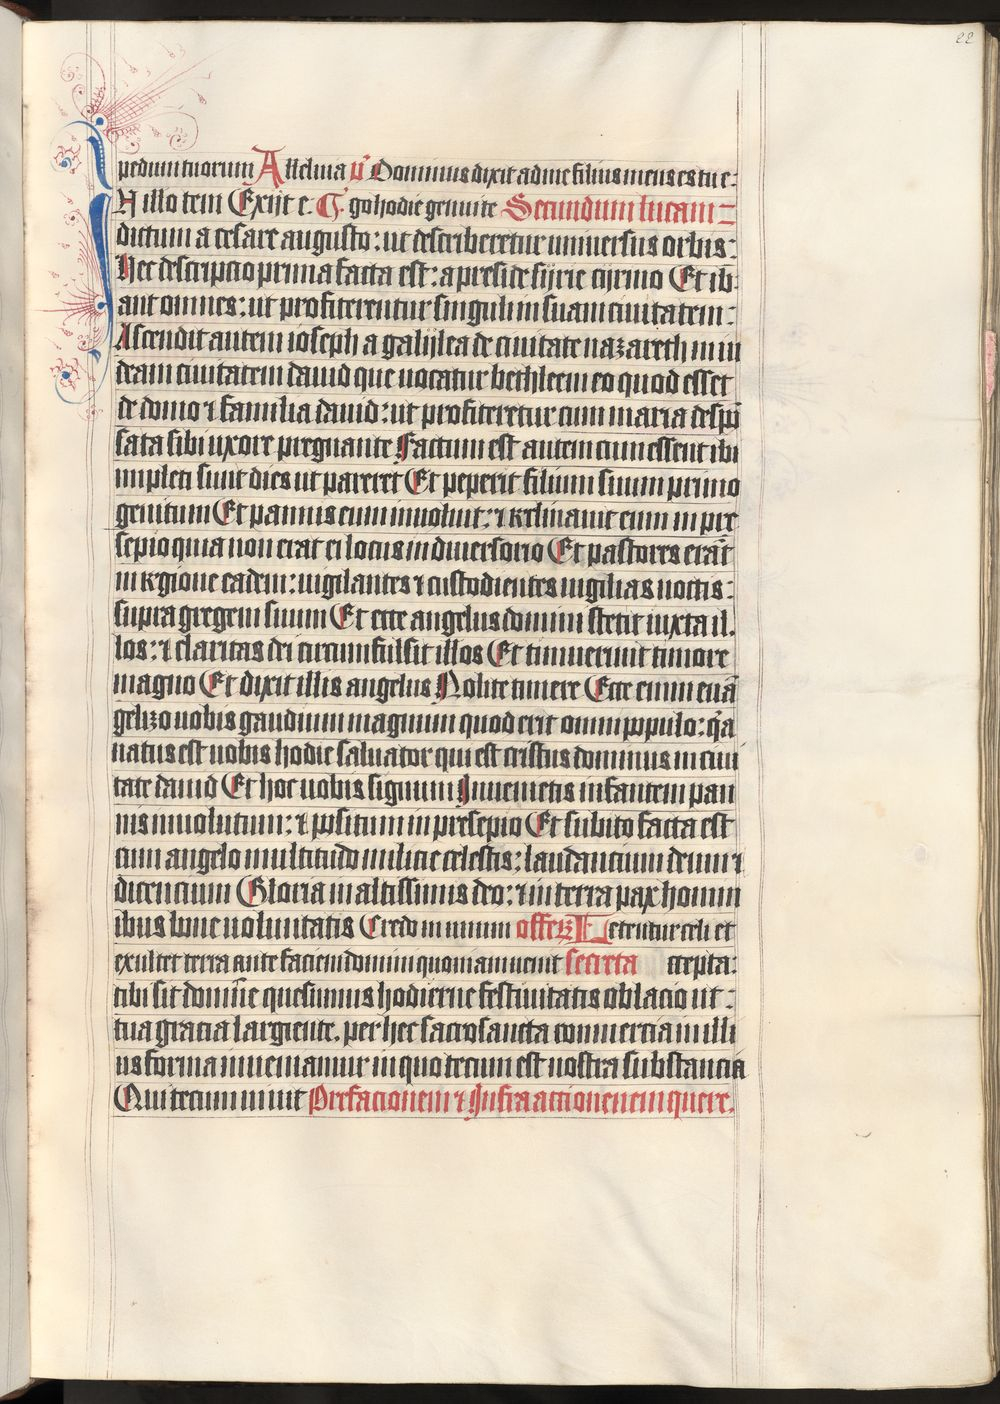 22
pedum tuorum Alleluia v̄ Dominus dixit ad me filius meus es tu e:
N illo tem Exijt e. C̄. go hodie genui te Secundum lucam
dictum a cesare augusto: ut describeretur universus orbis:
Hec descripcio prima facta est: a preside syrie cyrino Et ib
ant omnes: ut profiterentur singuli in suam civitatem:
Ascendit autem ioseph a galylea de civitate nazareth in iu
deam civitatem david que vocatur bethleem eo quod esset
de domo ⁊ familia david: ut profiteretur cum maria despō
sata sibi uxore pregnante Factum est autem cum essent ibi
impleti sunt dies ut pareret Et peperit filium suum primo
genitum Et pannis eum involuit: ⁊ reclinavit eum in pre
sepio quia non erat ei locus in diversorio Et pastores erāt
in regione eadem: vigilantes ⁊ custodientes vigilias noctis:
supra gregem suum Et ecce angelus domini stetit iuxta il.
los: ⁊ claritas dei circumfulsit illos Et timuerunt timore
magno Et dixit illis angelus Nolite timere Ecce enim euā
gelizo vobis gaudium magnum quod erit omni populo: q̄a
natus est vobis hodie salvator qui est cristus dominus in civi
tate david Et hoc vobis signum Invenietis infantem pan
nis involutum: ⁊ positum in presepio Et subito facta est
cum angelo multitudo milicie celestis: laudancium deum ⁊
dicencium Gloria in altissimis deo: ⁊ in terra pax homin
ibus bone voluntatis Credo in unum offerꝫ Letentur celi et
exultet terra ante faciem domini quoniam venit secreta ccepta:
tibi sit domine quesumus hodierne festivitatis oblacio ut:
tua gracia largiente. per hec sacrosancta commercia in illi
us forma inveniamur in quo tecum est nostra substancia
Qui tecum vivit Prefacionem ⁊ Infra accionem quere.